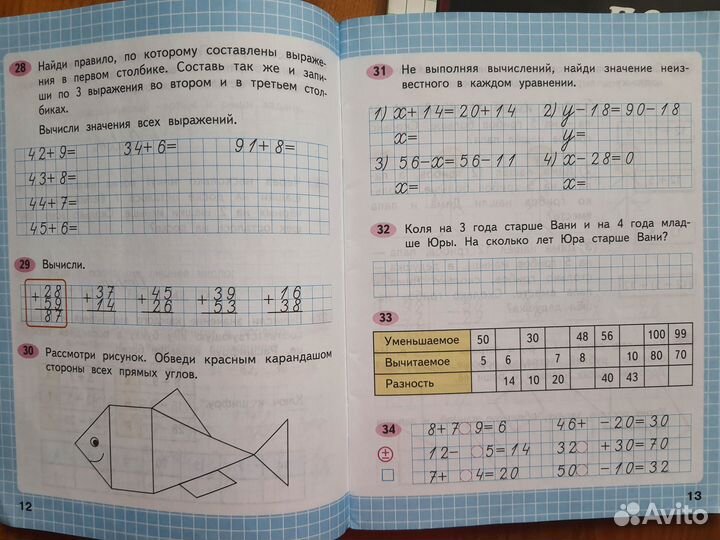 28 Найди правило, по которому составлены выраже-
ния в первом столбике. Составь так же и запи-
ши по 3 выражения во втором и в третьем стол-
биках.
Вычисли значения всех выражений.
42+9= 34+6= 91+8=
43+8=
44+7=
45+6=
29 Вычисли.
+28 +37 +45 +39 +16
59 14 26 53 38
87
30 Рассмотри рисунок. Обведи красным карандашом
стороны всех прямых углов.
12
31 Не выполняя вычислений, найди значение неиз-
вестного в каждом уравнении.
1) x+14=20+14 2) y-18=90-18
x= y=
3) 56-x=56-11 4) x-28=0
x= x=
32 Коля на 3 года старше Вани и на 4 года млад-
ше Юры. На сколько лет Юра старше Вани?
33
Уменьшаемое 50 30 48 56 100 99
Вычитаемое 5 6 7 8 10 80 70
Разность 14 10 20 40 43
34 8+7 9=6 46+ -20=30
± 12- 5=14 32 +30=70
7+ 4=20 50 -10=32
13
Avito